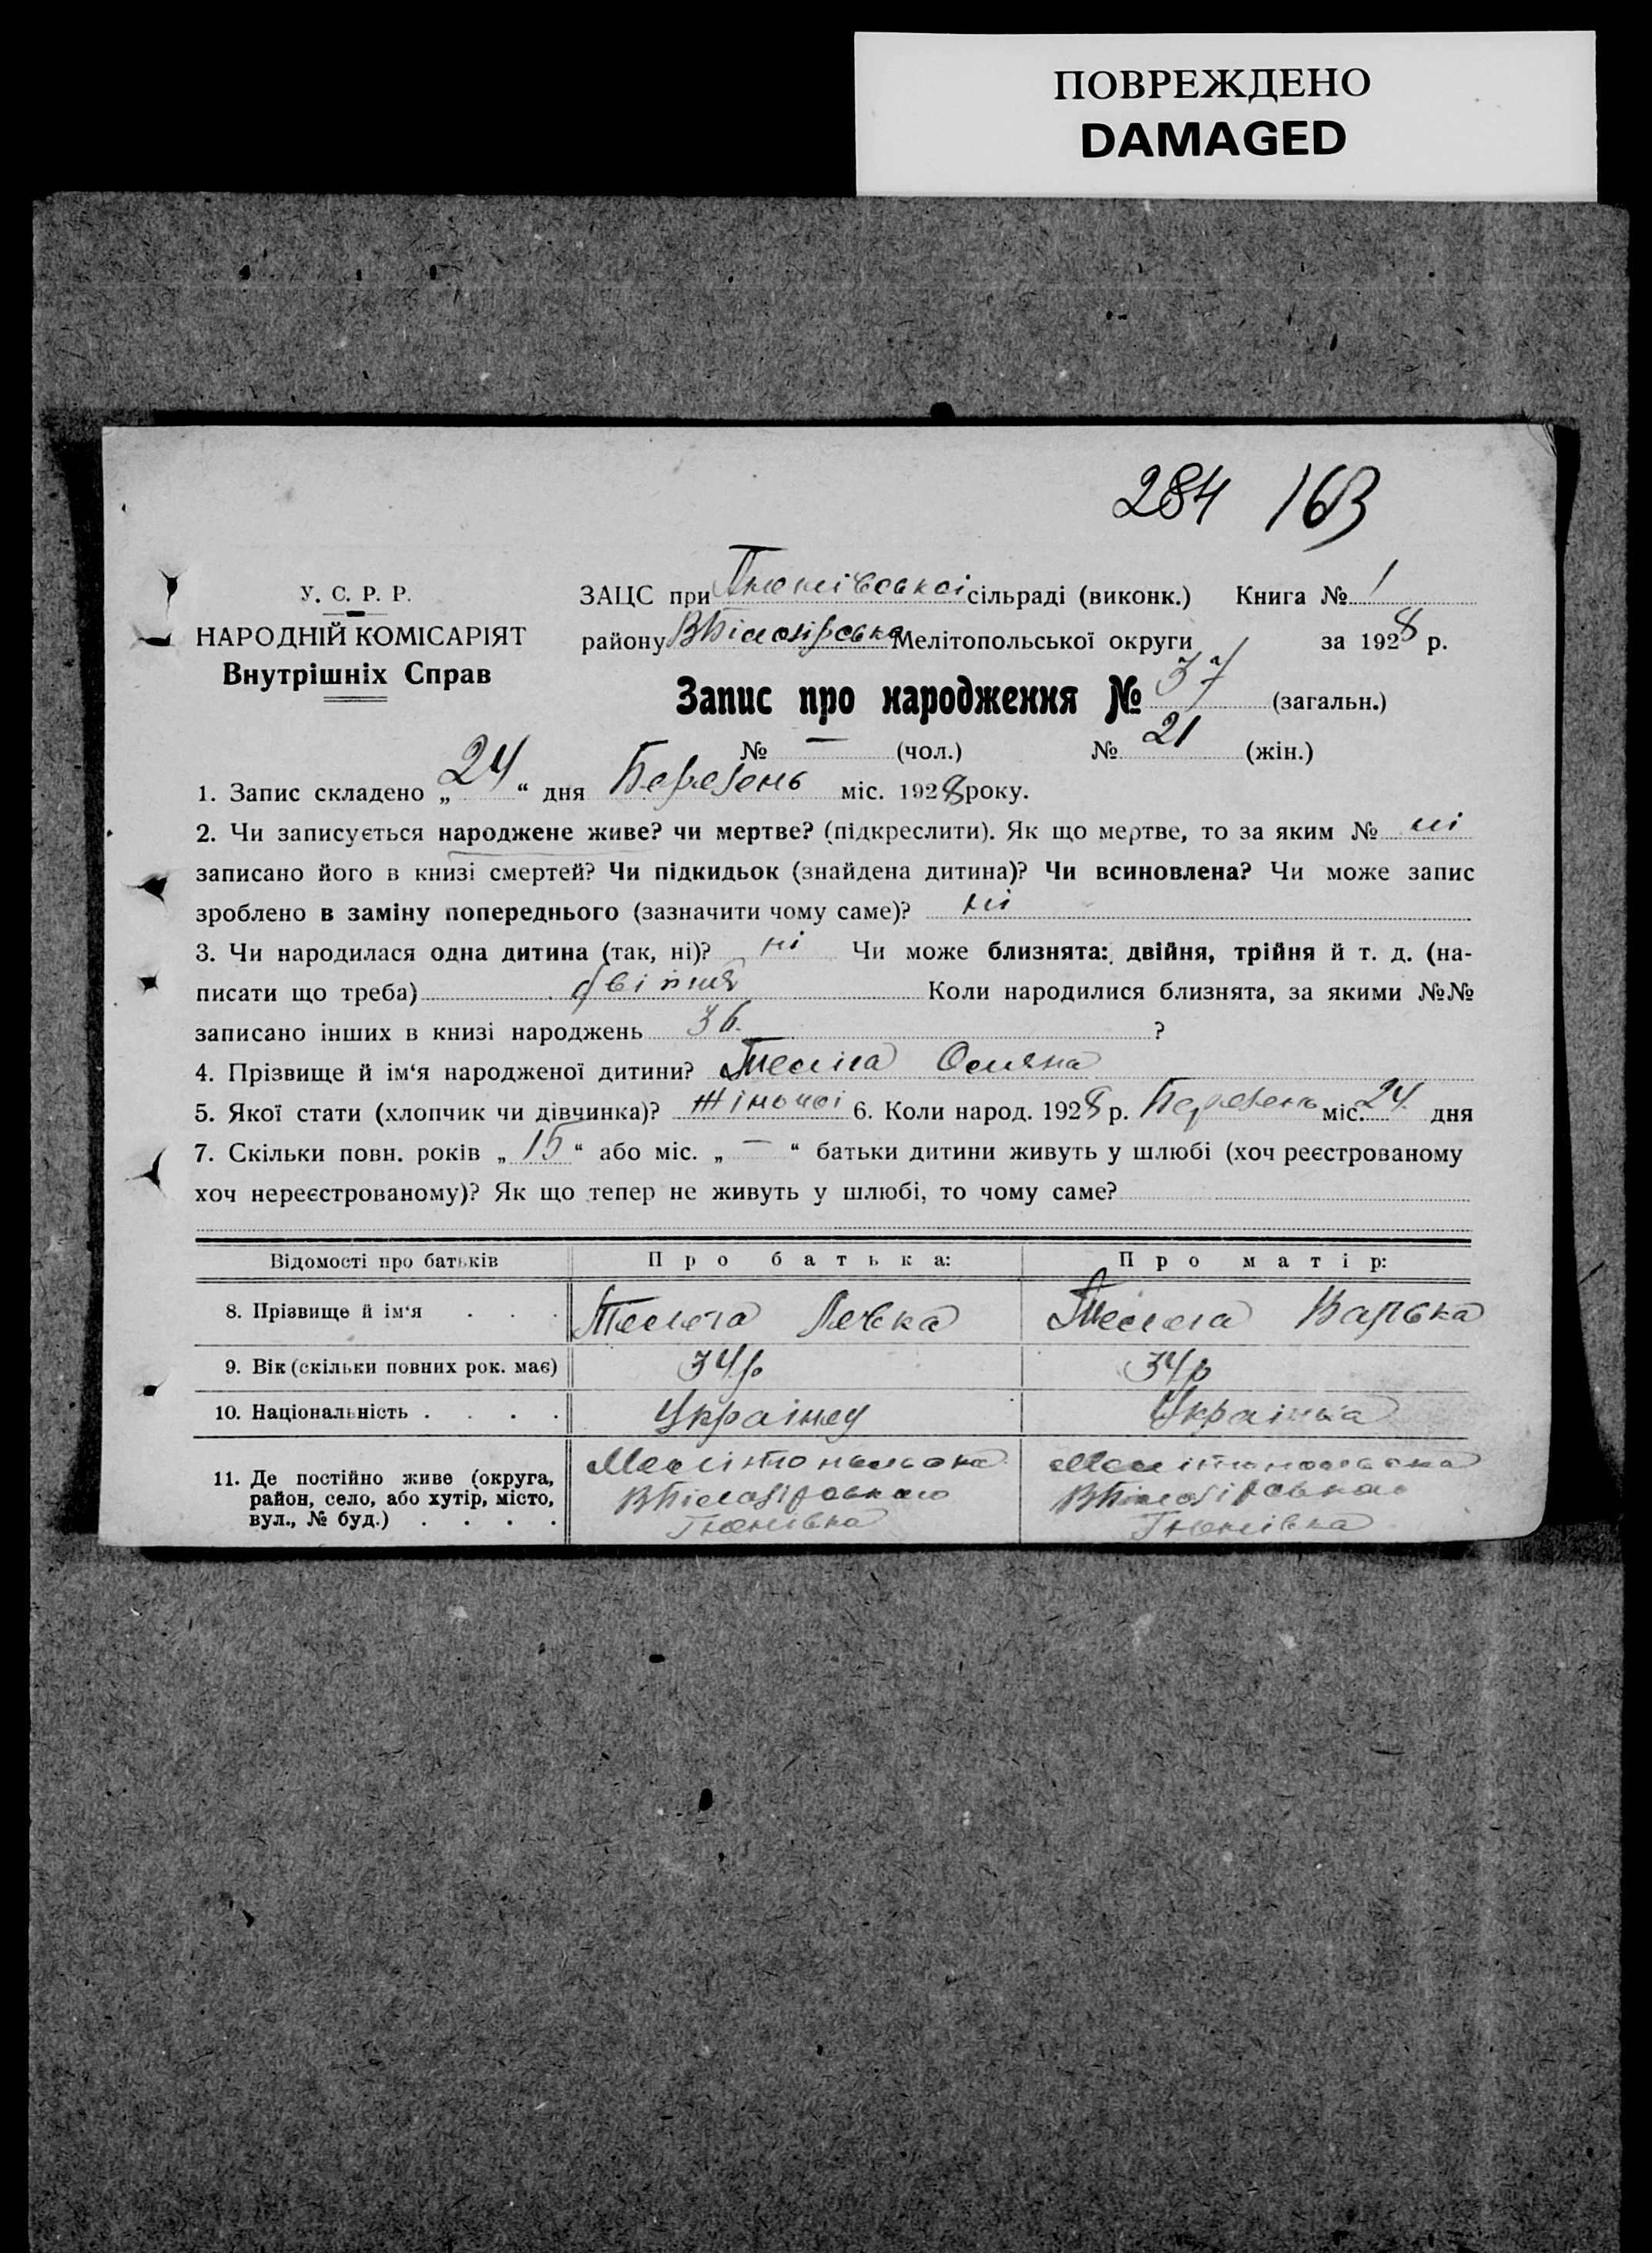 ПОВРЕЖДЕНО
DAMAGED
284 163
У. С. Р. Р.
НАРОДНІЙ КОМІСАРІЯТ
Внутрішніх Справ
ЗАЦС при сільраді (виконк.) Книга № 1
району Мелітопольської округи за 1928 р.
Запис про народження № 37 (загальн.)
№ — (чол.) № 21 (жін.)
1. Запис складено „ 24 “ дня Березень міс. 1928 року.
2. Чи записується народжене живе? чи мертве? (підкреслити). Як що мертве, то за яким № ні
записано його в книзі смертей? Чи підкидьок (знайдена дитина)? Чи всиновлена? Чи може запис
зроблено в заміну попереднього (зазначити чому саме)? ні
3. Чи народилася одна дитина (так, ні)? ні Чи може близнята: двійня, трійня й т. д. (на-
писати що треба) двійня Коли народилися близнята, за якими №№
записано інших в книзі народжень 36. ?
4. Прізвище й ім‘я народженої дитини?
5. Якої стати (хлопчик чи дівчинка)? Жіночої 6. Коли народ. 1928 р. Березень міс. 24 дня
7. Скільки повн. років „ 15 “ або міс. „ — “ батьки дитини живуть у шлюбі (хоч реєстрованому
хоч нереєстрованому)? Як що тепер не живуть у шлюбі, то чому саме?
Відомості про батьків Про батька: Про матір:
8. Прізвище й ім‘я . . . Левка Варька
9. Вік (скільки повних рок. має) 34 р 34 р
10. Національність . . . . Українец Українка
11. Де постійно живе (округа,
район, село, або хутір, місто,
вул., № буд.) . . . .
Мелітопольська Мелітопольська